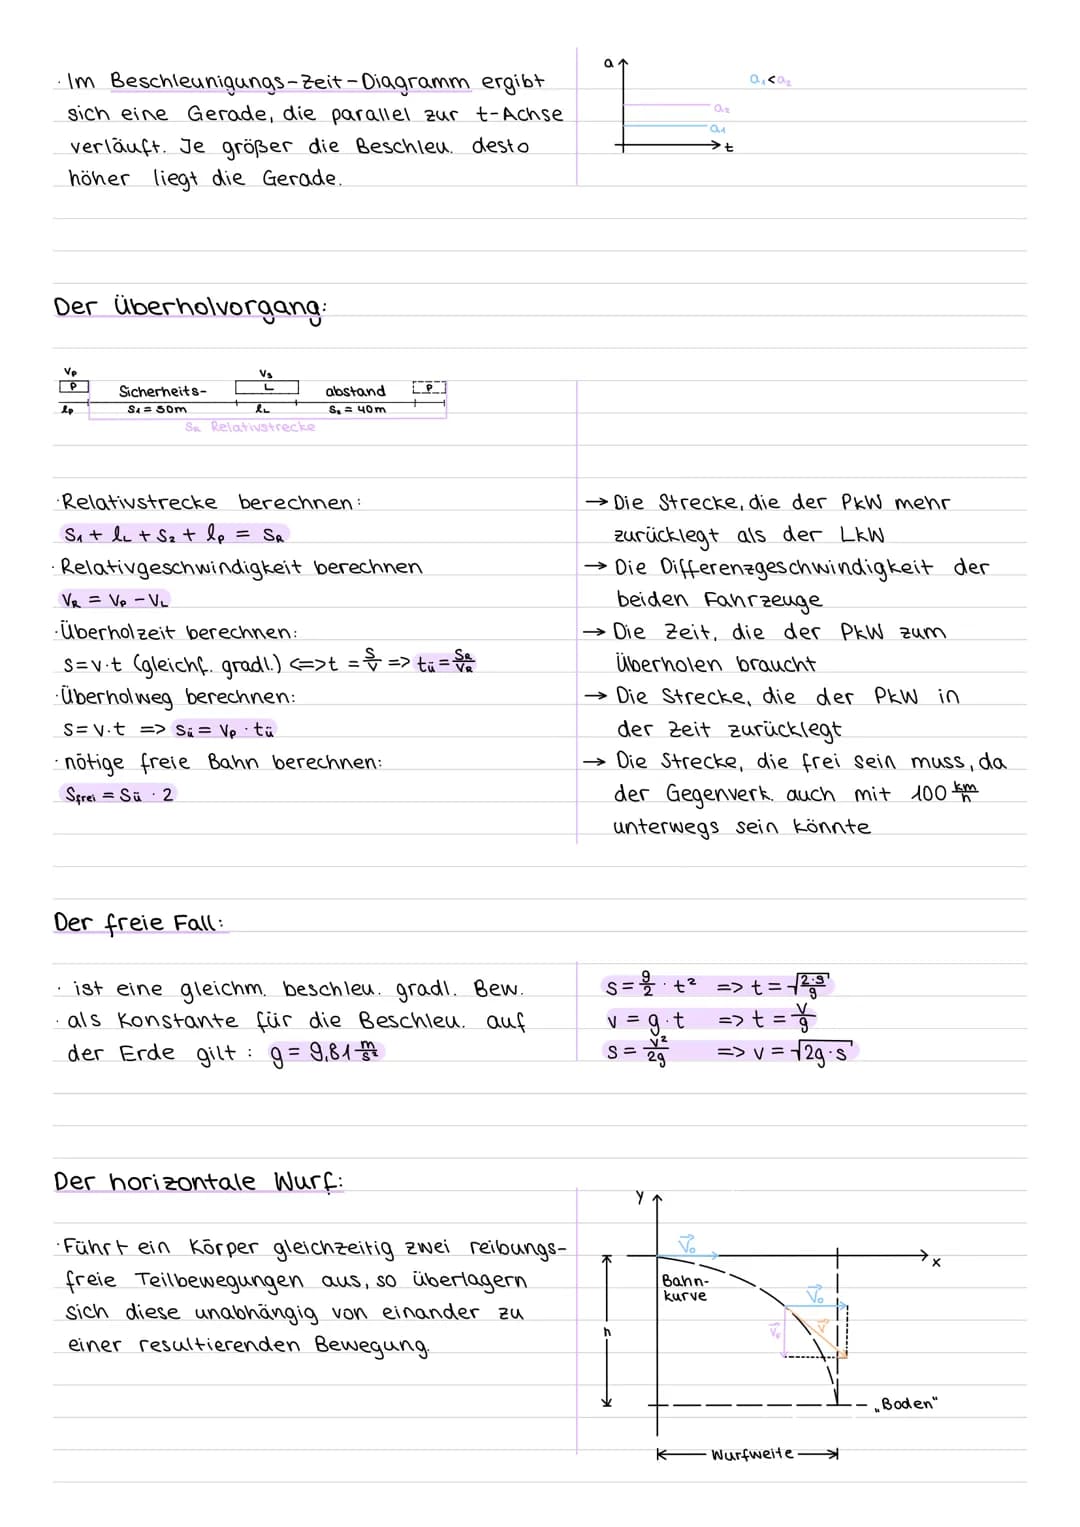 · Im Beschleunigungs-Zeit-Diagramm ergibt
sich eine Gerade, die parallel zur t-Achse
verläuft. Je größer die Beschleu. desto
höher liegt die Gerade.
a
a₁<a₂
a₂
a₁
t
Der Überholvorgang:
Vp
Vs
P
Sicherheits-
L
abstand
P
lp
S₁ = 50m
lL
S₂ = 40m
SR Relativstrecke
·Relativstrecke berechnen:
S₁ + lL + S₂ + lp = SR
·Relativgeschwindigkeit berechnen
VR = Vp - VL
·Überholzeit berechnen:
s=v·t (gleichf. gradl.) <=>t = s/v => tü = SR/VR
·Überholweg berechnen:
s=v·t => Sü = Vp · tü
· nötige freie Bahn berechnen:
Sfrei = Sü · 2
→ Die Strecke, die der PKW mehr
zurücklegt als der LKW
→ Die Differenzgeschwindigkeit der
beiden Fahrzeuge
→ Die Zeit, die der PKW zum
Überholen braucht
→ Die Strecke, die der PKW in
der Zeit zurücklegt
→ Die Strecke, die frei sein muss, da
der Gegenverk. auch mit 100 km/h
unterwegs sein könnte
Der freie Fall:
· ist eine gleichm. beschleu. gradl. Bew.
· als Konstante für die Beschleu. auf
der Erde gilt : g = 9,81 m/s²
s = g/2 · t² => t = √(2·s/g)
v = g·t => t = v/g
s = v²/2g => v = √2g·s
Der horizontale Wurf:
·Führt ein Körper gleichzeitig zwei reibungs-
freie Teilbewegungen aus, so überlagern
sich diese unabhängig von einander zu
einer resultierenden Bewegung.
y
V₀
x
Bahn-
kurve
V₀
V
h
„Boden"
Wurfweite